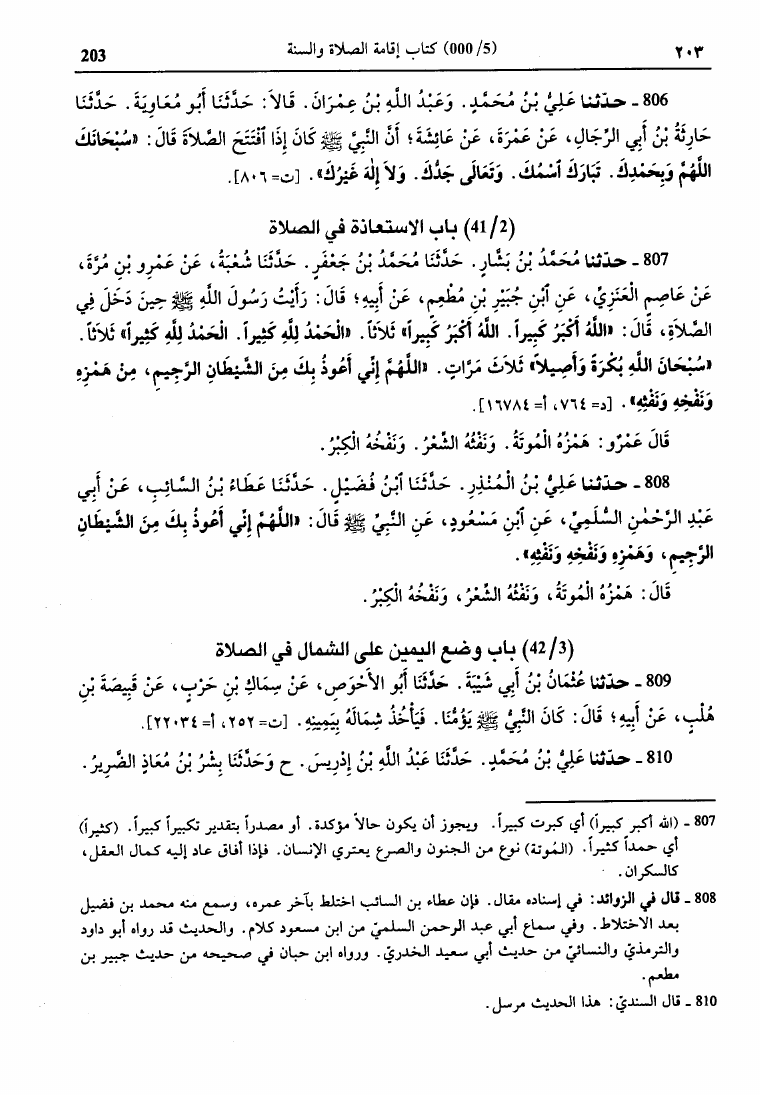 ٢٠٣ (5/ 000) كتاب إقامة الصلاة والسنة 203
806 ـ حدّثنا عَلِيُّ بْنُ مُحَمَّدٍ. وَعَبْدُ اللَّهِ بْنُ عِمْرَانَ. قَالاَ: حَدَّثَنَا أَبُو مُعَاوِيَةَ. حَدَّثَنَا
حَارِثَةُ بْنُ أَبِي الرِّجَالِ، عَنْ عَمْرَةَ، عَنْ عَائِشَةَ؛ أَنَّ النَّبِيَّ ﷺ كَانَ إِذَا ٱفْتَتَحَ الصَّلاَةَ قَالَ: «سُبْحَانَكَ
اللَّهُمَّ وَبِحَمْدِكَ. تَبَارَكَ ٱسْمُكَ. وَتَعَالَى جَدُّكَ. وَلاَ إِلٰهَ غَيْرُكَ». [ت= ٨٠٦].
(41/2) باب الاستعاذة في الصلاة
807 ـ حدّثنا مُحَمَّدُ بْنُ بَشَّارٍ. حَدَّثَنَا مُحَمَّدُ بْنُ جَعْفَرٍ. حَدَّثَنَا شُعْبَةُ، عَنْ عَمْرِو بْنِ مُرَّةَ،
عَنْ عَاصِمٍ الْعَنَزِيِّ، عَنِ ٱبْنِ جُبَيْرِ بْنِ مُطْعِمٍ، عَنْ أَبِيهِ؛ قَالَ: رَأَيْتُ رَسُولَ اللَّهِ ﷺ حِينَ دَخَلَ فِي
الصَّلاَةِ، قَالَ: «اللَّهُ أَكْبَرُ كَبِيراً. اللَّهُ أَكْبَرُ كَبِيراً» ثَلاَثاً. «الْحَمْدُ لِلَّهِ كَثِيراً. الْحَمْدُ لِلَّهِ كَثِيراً» ثَلاَثاً.
«سُبْحَانَ اللَّهِ بُكْرَةً وَأَصِيلاً» ثَلاَثَ مَرَّاتٍ. «اللَّهُمَّ إِنِّي أَعُوذُ بِكَ مِنَ الشَّيْطَانِ الرَّجِيمِ، مِنْ هَمْزِهِ
وَنَفْخِهِ وَنَفْثِهِ». [د= ٧٦٤، أ= ١٦٧٨٤].
قَالَ عَمْرٌو: هَمْزُهُ الْمُوتَةُ. وَنَفْثُهُ الشِّعْرُ. وَنَفْخُهُ الْكِبْرُ.
808 ـ حدّثنا عَلِيُّ بْنُ الْمُنْذِرِ. حَدَّثَنَا ٱبْنُ فُضَيْلٍ. حَدَّثَنَا عَطَاءُ بْنُ السَّائِبِ، عَنْ أَبِي
عَبْدِ الرَّحْمٰنِ السُّلَمِيِّ، عَنِ ٱبْنِ مَسْعُودٍ، عَنِ النَّبِيِّ ﷺ قَالَ: «اللَّهُمَّ إِنِّي أَعُوذُ بِكَ مِنَ الشَّيْطَانِ
الرَّجِيمِ، وَهَمْزِهِ وَنَفْخِهِ وَنَفْثِهِ».
قَالَ: هَمْزُهُ الْمُوتَةُ، وَنَفْثُهُ الشِّعْرُ، وَنَفْخُهُ الْكِبْرُ.
(42/3) باب وضع اليمين على الشمال في الصلاة
809 ـ حدّثنا عُثْمَانُ بْنُ أَبِي شَيْبَةَ. حَدَّثَنَا أَبُو الأَحْوَصِ، عَنْ سِمَاكِ بْنِ حَرْبٍ، عَنْ قَبِيصَةَ بْنِ
هُلْبٍ، عَنْ أَبِيهِ؛ قَالَ: كَانَ النَّبِيُّ ﷺ يَؤُمُّنَا. فَيَأْخُذُ شِمَالَهُ بِيَمِينِهِ. [ت= ٢٥٢، أ= ٢٢٠٣٤].
810 ـ حدّثنا عَلِيُّ بْنُ مُحَمَّدٍ. حَدَّثَنَا عَبْدُ اللَّهِ بْنُ إِدْرِيسَ. ح وَحَدَّثَنَا بِشْرُ بْنُ مُعَاذٍ الضَّرِيرُ.
807 ـ (الله أكبر كبيراً) أي كبرت كبيراً. ويجوز أن يكون حالاً مؤكدة. أو مصدراً بتقدير تكبيراً كبيراً. (كثيراً)
أي حمداً كثيراً. (المُوتة) نوع من الجنون والصرع يعتري الإنسان. فإذا أفاق عاد إليه كمال العقل،
كالسكران.
808 ـ قال في الزوائد: في إسناده مقال. فإن عطاء بن السائب اختلط بآخر عمره، وسمع منه محمد بن فضيل
بعد الاختلاط. وفي سماع أبي عبد الرحمن السلميّ من ابن مسعود كلام. والحديث قد رواه أبو داود
والترمذيّ والنسائيّ من حديث أبي سعيد الخدريّ. ورواه ابن حبان في صحيحه من حديث جبير بن
مطعم.
810 ـ قال السنديّ: هذا الحديث مرسل.